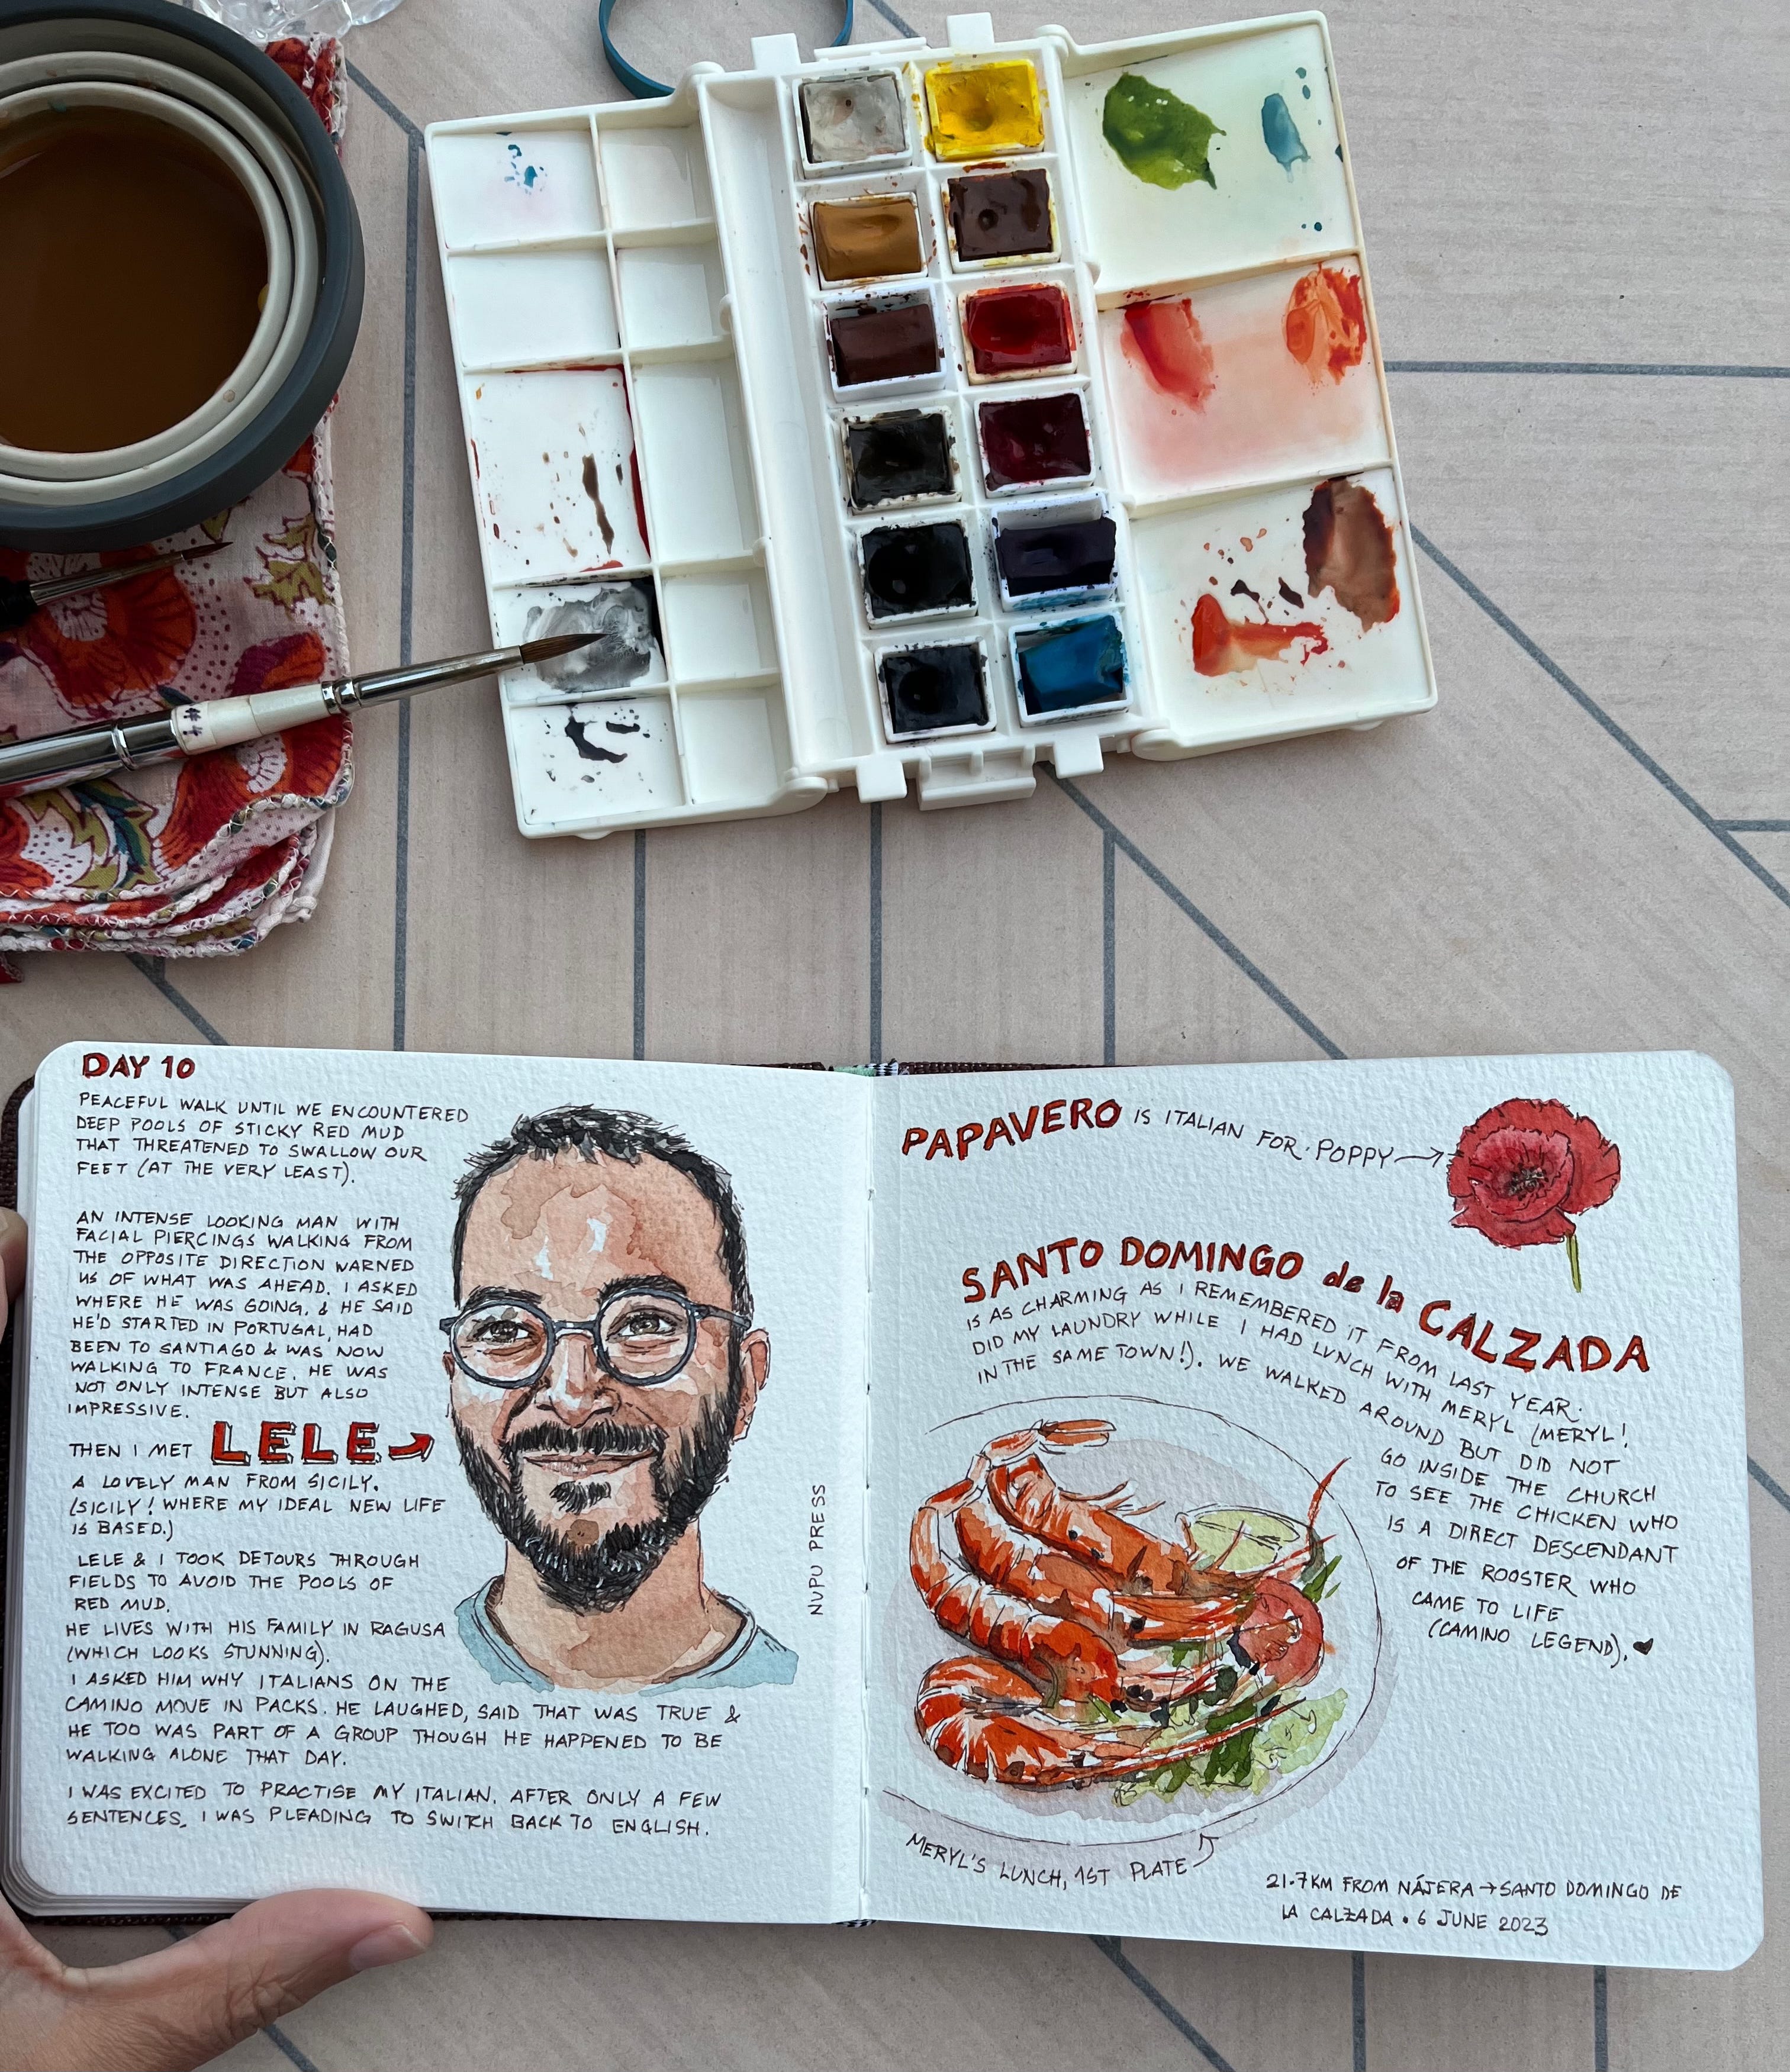 DAY 10
PEACEFUL WALK UNTIL WE ENCOUNTERED
DEEP POOLS OF STICKY RED MUD
THAT THREATENED TO SWALLOW OUR
FEET (AT THE VERY LEAST).
AN INTENSE LOOKING MAN WITH
FACIAL PIERCINGS WALKING FROM
THE OPPOSITE DIRECTION WARNED
US OF WHAT WAS AHEAD. I ASKED
WHERE HE WAS GOING, & HE SAID
HE'D STARTED IN PORTUGAL, HAD
BEEN TO SANTIAGO & WAS NOW
WALKING TO FRANCE. HE WAS
NOT ONLY INTENSE BUT ALSO
IMPRESSIVE.
THEN I MET LELE →
A LOVELY MAN FROM SICILY.
(SICILY! WHERE MY IDEAL NEW LIFE
IS BASED.)
LELE & I TOOK DETOURS THROUGH
FIELDS TO AVOID THE POOLS OF
RED MUD.
HE LIVES WITH HIS FAMILY IN RAGUSA
(WHICH LOOKS STUNNING).
I ASKED HIM WHY ITALIANS ON THE
CAMINO MOVE IN PACKS. HE LAUGHED, SAID THAT WAS TRUE &
HE TOO WAS PART OF A GROUP THOUGH HE HAPPENED TO BE
WALKING ALONE THAT DAY.
I WAS EXCITED TO PRACTISE MY ITALIAN. AFTER ONLY A FEW
SENTENCES, I WAS PLEADING TO SWITCH BACK TO ENGLISH.
NUPU PRESS
PAPAVERO IS ITALIAN FOR POPPY →
SANTO DOMINGO de la CALZADA
IS AS CHARMING AS I REMEMBERED IT FROM LAST YEAR.
DID MY LAUNDRY WHILE I HAD LUNCH WITH MERYL (MERYL!
IN THE SAME TOWN!). WE WALKED AROUND BUT DID NOT
GO INSIDE THE CHURCH
TO SEE THE CHICKEN WHO
IS A DIRECT DESCENDANT
OF THE ROOSTER WHO
CAME TO LIFE
(CAMINO LEGEND). ♥
MERYL'S LUNCH, 1ST PLATE
21.7KM FROM NÁJERA → SANTO DOMINGO DE
LA CALZADA • 6 JUNE 2023